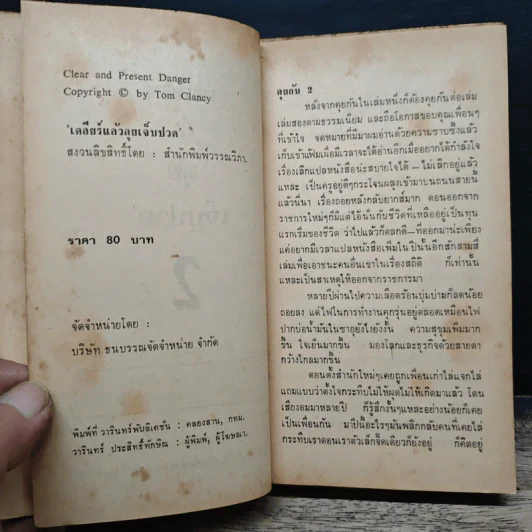 Clear and Present Danger
Copyright © by Tom Clancy
'เคลียร์แล้วลุยเจ็บปวด'
สงวนลิขสิทธิ์โดย : สำนักพิมพ์วรรณวิภา.
ราคา 80 บาท
จัดจำหน่ายโดย :
บริษัท ธนบรรณจัดจำหน่าย จำกัด
พิมพ์ที่ วารินทร์พับลิเคชั่น : คลองสาน, กทม.
วารินทร์ ประสิทธิ์ทักษิณ : ผู้พิมพ์, ผู้โฆษณา.
คุยกัน 2
หลังจากคุยกันในเล่มหนึ่งก็ต้องคุยกันต่อเล่ม
สองตามธรรมเนียม และถือโอกาสขอบคุณเพื่อนๆ
ที่เข้าใจ จดหมายที่มีมาผมอ่านด้วยความซาบซึ้งแล้ว
เก็บเข้าแฟ้มเผื่อมีเวลาจะได้อ่านอีกเมื่ออยากได้กำลังใจ
เรื่องเลิกแปลหนังสือน่ะสบายใจได้ — ไม่เลิกอยู่แล้ว
แหละ เป็นครูอยู่ดีๆกระโจนผลุงเข้ามาบนถนนสายนี้
แล้วนี่นา เรื่องถอยหลังกลับยากส์มาก ตอนออกจาก
ราชการใหม่ๆก็มีแต่ไอ้นั่นกับชีวิตที่เหลืออยู่เป็นทุน
แรกเริ่มของชีวิต ว่าไปแล้วก็ตลกดี—ที่ออกมาน่ะเพียง
แค่อยากมีเวลาแปลหนังสือเพิ่มในปีนั้นอีกสักสามสี่
เล่มเพื่อเอาชนะคนอื่นเขาในเรื่องสถิติ ก็เท่านั้น
แหละเป็นสาเหตุให้ออกจากราชการมา
หลายปีผ่านไปความเลือดร้อนบุ่มบ่ามก็ลดน้อย
ถอยลง แต่ไฟในการทำงานคุกรุ่นอยู่ตลอดเหมือนไฟ
ปากบ่อน้ำมันในซาอุยังไงยังงั้น ความสุขุมเพิ่มมาก
ขึ้น ใจเย็นมากขึ้น มองโลกและธุรกิจด้วยสายตา
กว้างไกลมากขึ้น
ตอนตั้งสำนักใหม่ๆเคยถูกเพื่อนเก่าไล่แจกไล่
แถมแบบว่าตั้งใจกระทืบไม่ให้ผุดไม่ให้เกิดมาแล้ว โดน
เสียงอมมาหลายปี ก็รู้สึกงั้นๆแหละอย่างน้อยก็เคย
เป็นเพื่อนกัน มาปีนี้อะไรๆมันพลิกกลับคนที่เคยไล่
กระทืบเราตอนเราตัวเล็กจิ๊ดเดียวก็ยังอยู่ ก็คิดอยู่